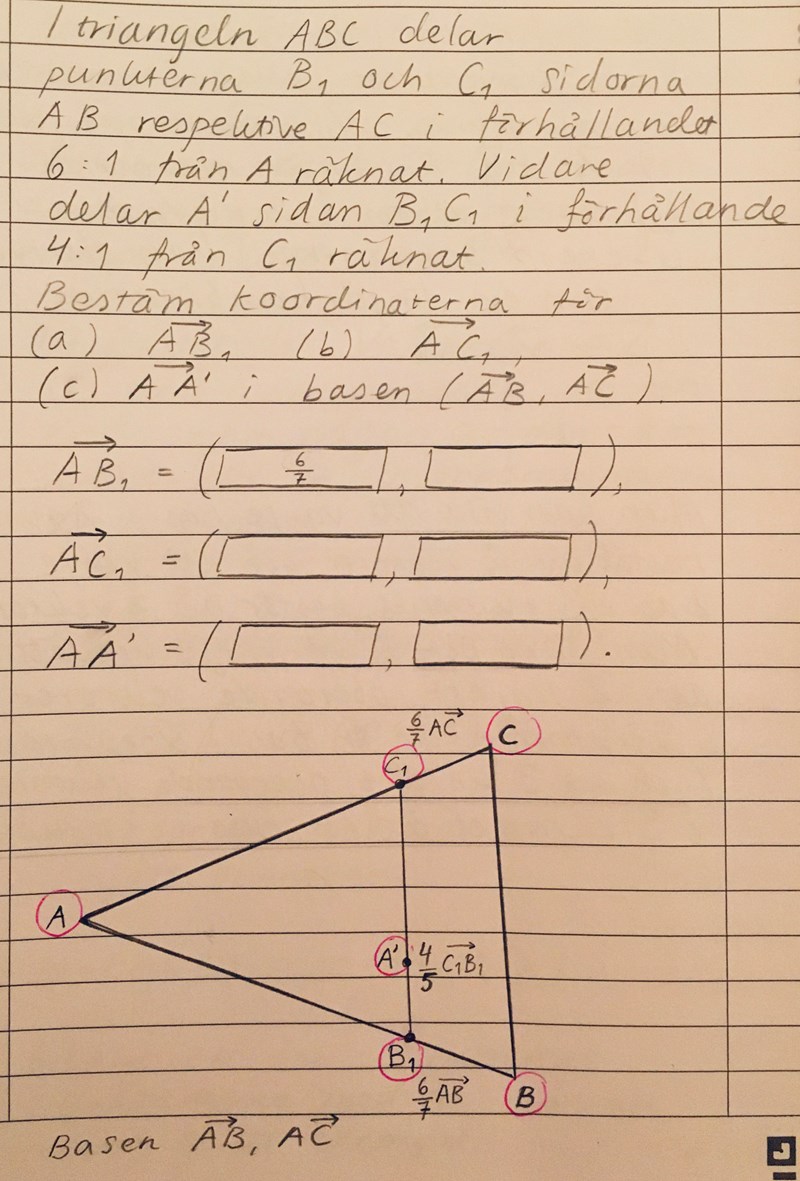 I triangeln ABC delar
punkterna B₁ och C₁ sidorna
AB respektive AC i förhållandet
6:1 från A räknat. Vidare
delar A' sidan B₁C₁ i förhållande
4:1 från C₁ räknat.
Bestäm koordinaterna för
(a) AB₁→ (b) AC₁→,
(c) AA'→ i basen (AB→, AC→).
AB₁→ = (6/7, ),
AC₁→ = ( , ),
AA'→ = ( , ).
6/7 AC→
C
C₁
A
A' 4/5 C₁B₁→
B₁
6/7 AB→
B
Basen AB→, AC→